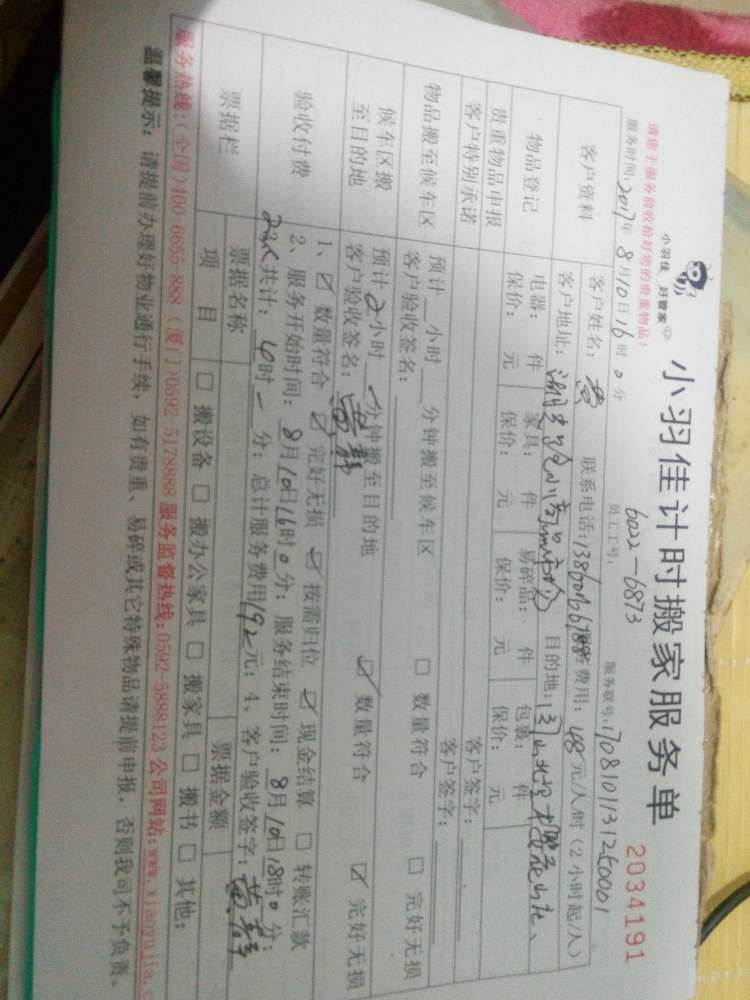 小羽佳 好管家
小羽佳计时搬家服务单 2034191
请您于服务前收拾好您的贵重物品:
服务时间:2017年8月10日16时0分 员工工号:6022-6873 服务联号:
客户资料 客户姓名:黄 联系电话: 服务费用:48元/人/时(2小时起/人)
客户地址: 目的地:
物品登记 电器: 件 家具: 件 易碎品: 件 包裹: 件
贵重物品申报 保价: 元 保价: 元 保价: 元 保价: 元
客户特别承诺 客户签字:
客户签字:
物品搬至候车区 预计 小时 分钟搬至候车区 □ 数量符合 □ 完好无损
客户验收签名:
候车区搬至目的地 预计2小时 分钟搬至目的地 ☑ 数量符合 ☑ 完好无损
客户验收签名:
验收付费 1、☑ 数量符合 ☑ 完好无损 ☑ 按需归位 ☑ 现金结算 □ 转账汇款
2、服务开始时间:8月10日16时0分;服务结束时间:8月10日18时0分;
共计:4时 分;总计服务费用192元;4、客户验收签字:
票据栏 票据名称 票据金额
项目 □ 搬设备 □ 搬办公家具 □ 搬家具 □ 搬书 □ 其他:
服务热线:(全国)400-6655 888 (厦门)0592-5178888 服务监督热线:0592-5888123 公司网站:www.xiaoyujia.c
温馨提示:请提前办理好物业通行手续,如有贵重、易碎或其它特殊物品请提前申报,否则我司不予负责。